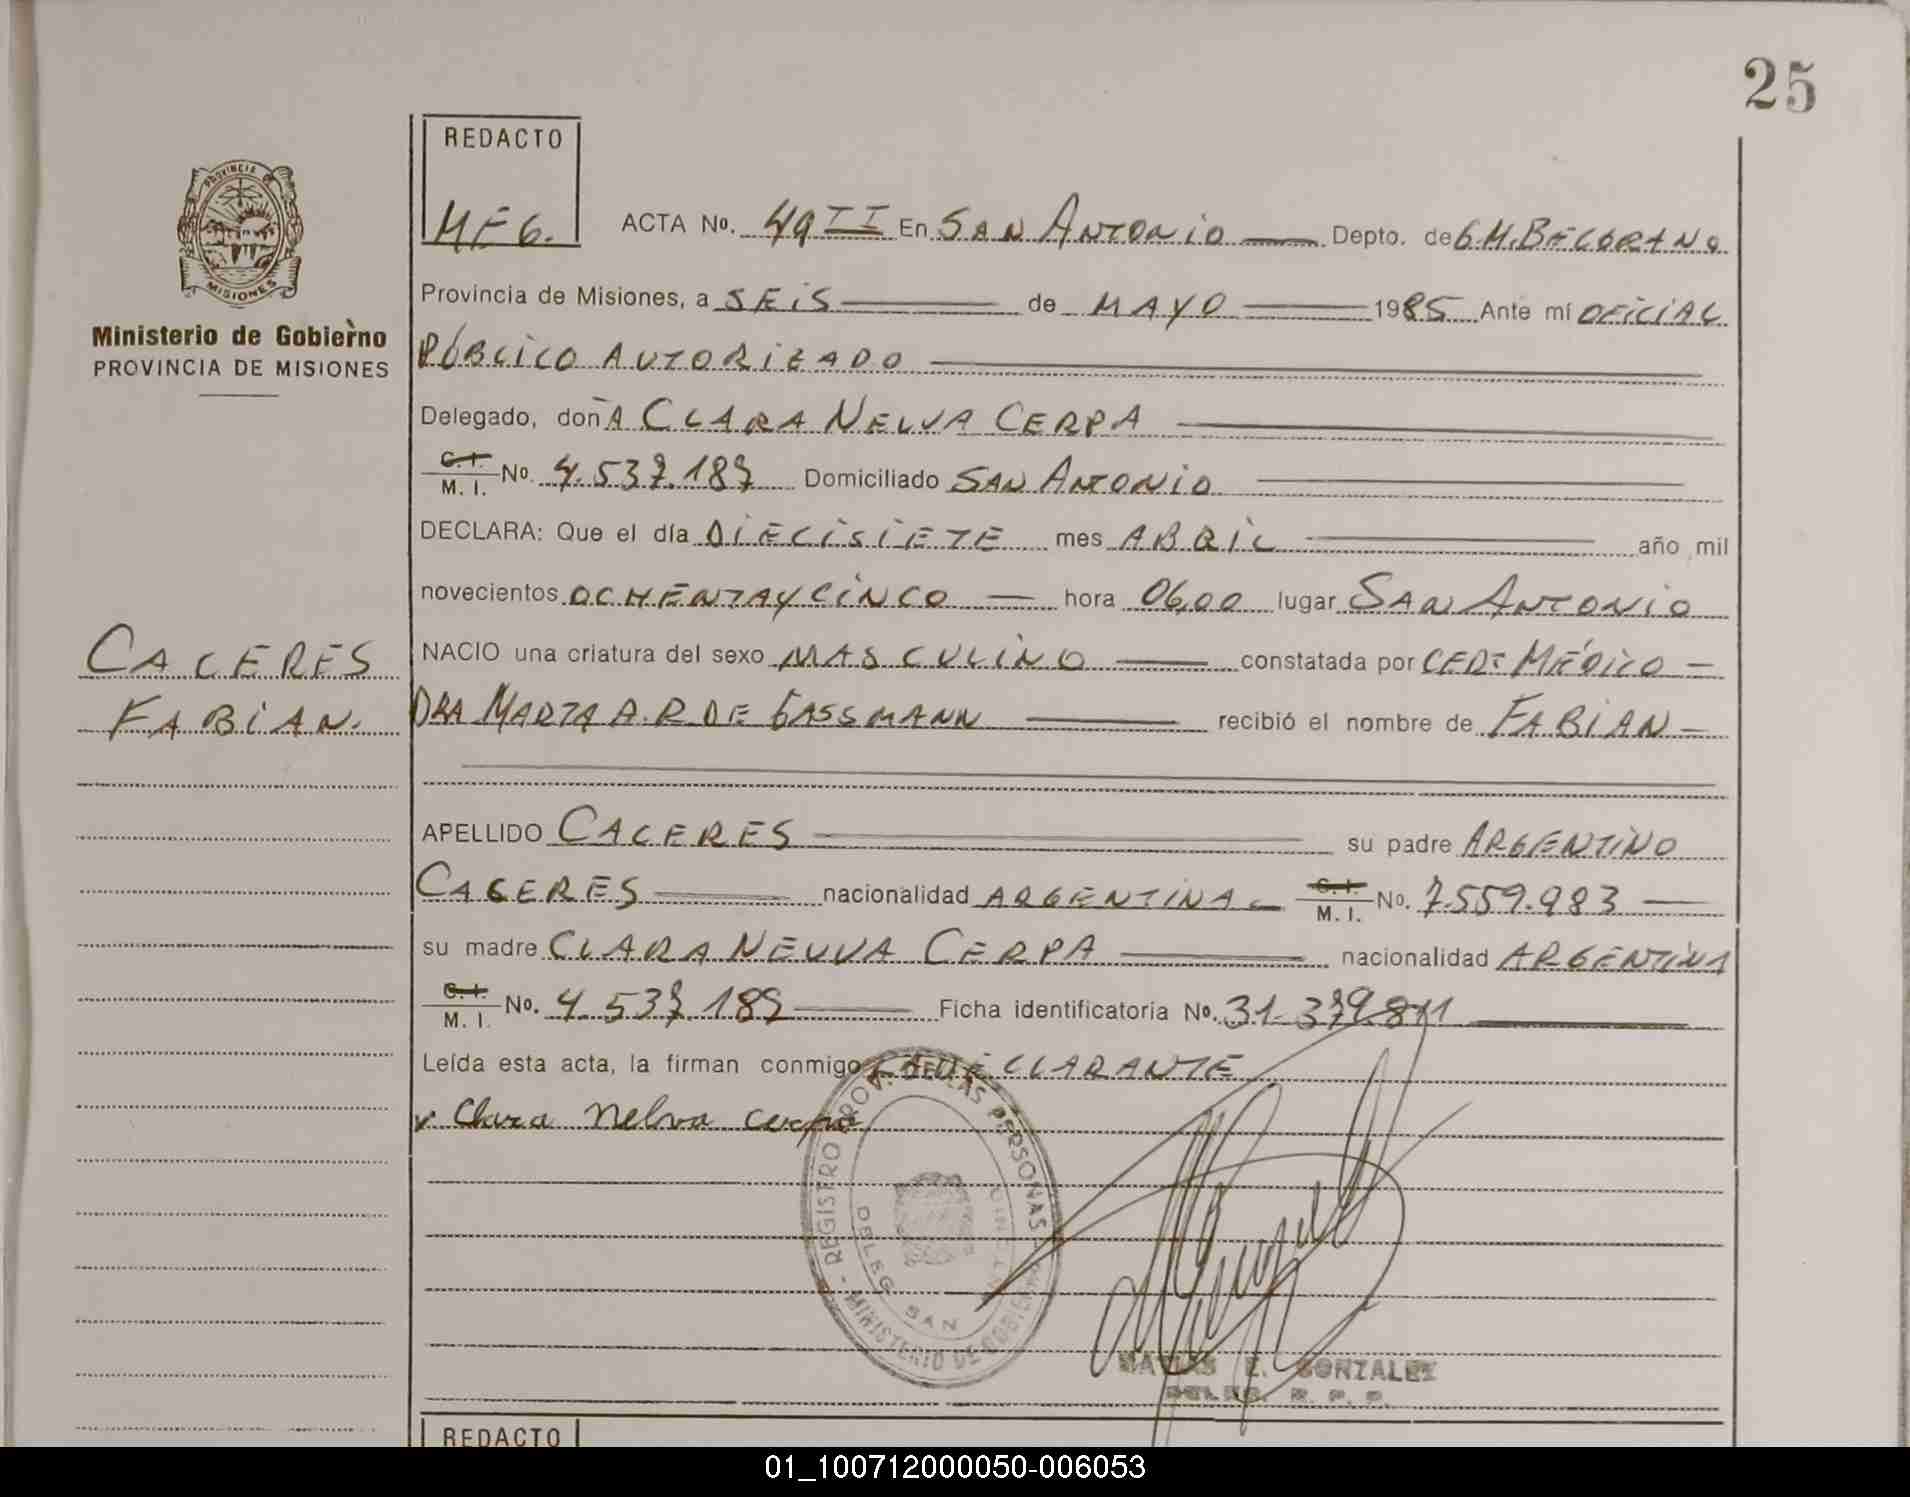 25
REDACTO
MEG.
PROVINCIA DE
MISIONES
Ministerio de Gobierno
PROVINCIA DE MISIONES
ACTA No. 49 II En SAN ANTONIO Depto. de G.M. BELGRANO
Provincia de Misiones, a SEIS de MAYO 1985 Ante mí OFICIAL
PÚBLICO AUTORIZADO
Delegado, doñA CLARA NELVA CERPA
C.I. M. I. No. 4.537.187 Domiciliado SAN ANTONIO
DECLARA: Que el día DIECISIETE mes ABRIL año mil
novecientos OCHENTA Y CINCO hora 06,00 lugar SAN ANTONIO
CACERES
FABIAN.
NACIO una criatura del sexo MASCULINO constatada por CERT MÉDICO
DRA MARTA A.R. DE GASSMANN recibió el nombre de FABIAN
APELLIDO CACERES su padre ARGENTINO
CACERES nacionalidad ARGENTINA C.I. M. I. No. 7.559.983
su madre CLARA NELVA CERPA nacionalidad ARGENTINA
C.I. M. I. No. 4.537.187 Ficha identificatoria No. 31.379.811
Leída esta acta, la firman conmigo LA DECLARANTE
Clara Nelva Cerpa
REGISTRO PROV. DE LAS PERSONAS - MINISTERIO DE GOBIERNO
DELEG. SAN ANTONIO
E. GONZALEZ
DELEG. R. P. P.
REDACTO
01_100712000050-006053